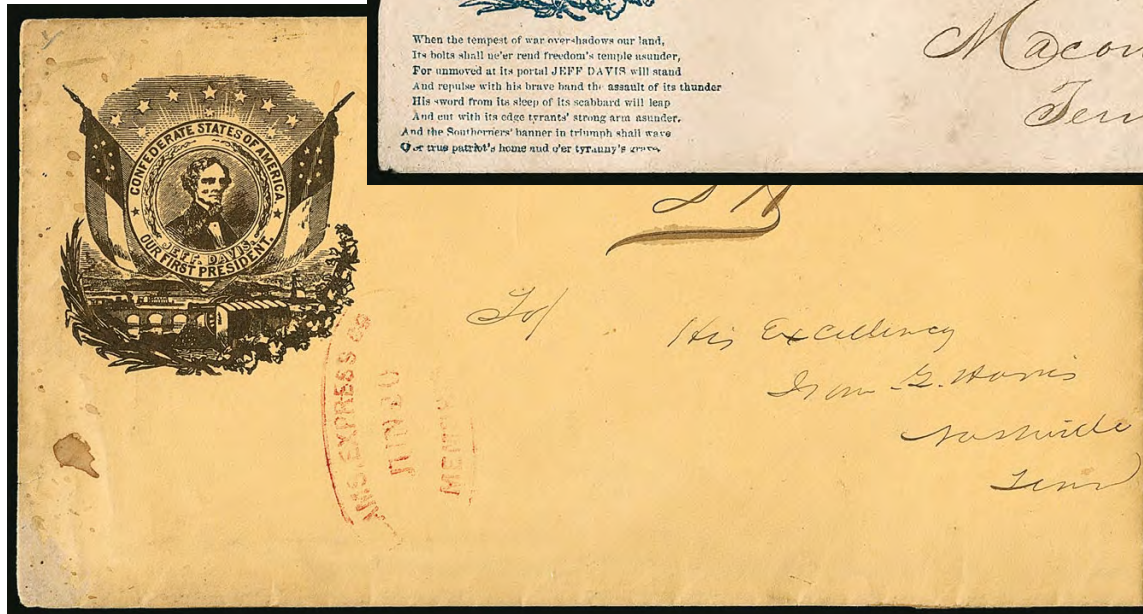 When the tempest of war overshadows our land,
Its bolts shall ne'er rend freedom's temple asunder,
For unmoved at its portal JEFF DAVIS will stand
And repulse with his brave band the assault of its thunder
His sword from its sleep of its scabbard will leap
And cut with its edge tyrants' strong arm asunder.
And the Southerners' banner in triumph shall wave
O'er true patriot's home and o'er tyranny's grave.
Macon
Ten
CONFEDERATE STATES OF AMERICA.
JEFF. DAVIS.
OUR FIRST PRESIDENT.
AMS. EXPRESS CO
JUN
MEMPH
To/
His Excellency
Isam G. Harris
Nashville
Tenn